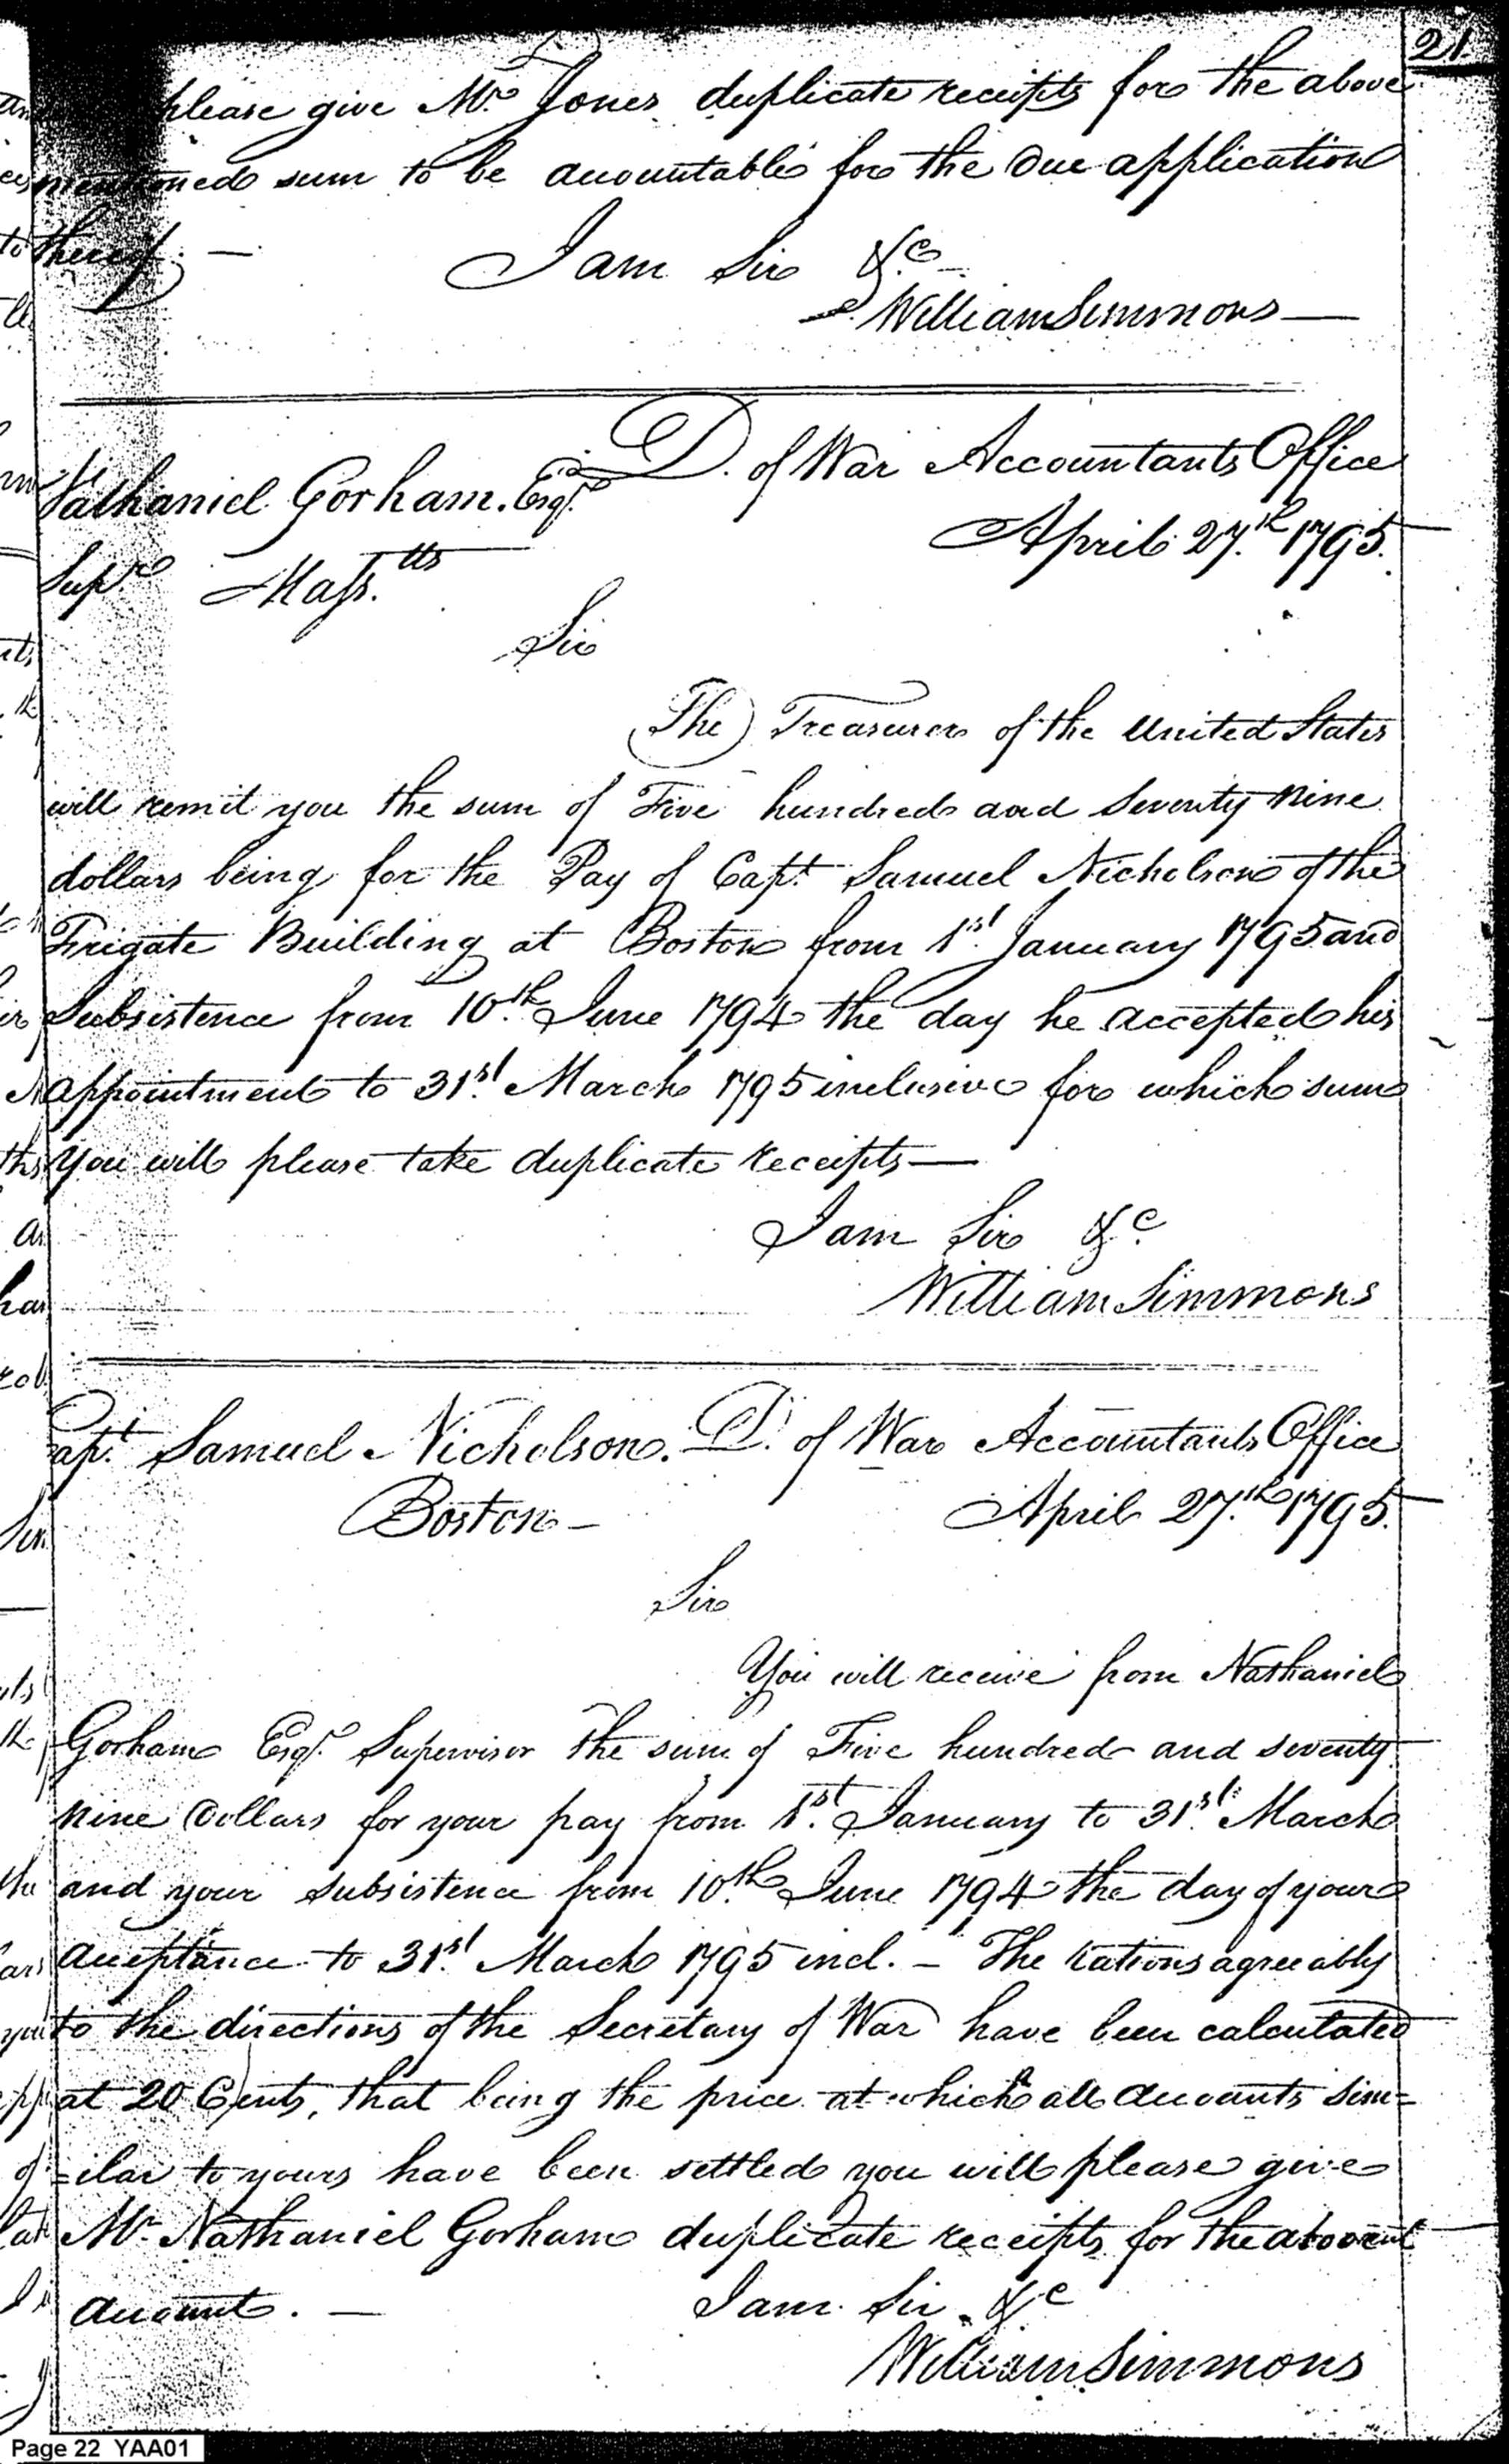 21.
please give Mr. Jones duplicate receipts for the above
mentioned sum to be accountable for the due application
thereof. —
I am Sir &c.
William Simmons —
D. of War Accountants Office
Nathaniel Gorham. Esqr.
April 27.th 1795.
Supr. Mass.tts
Sir
The Treasurer of the United States
will remit you the sum of Five hundred and seventy nine
dollars being for the Pay of Capt. Samuel Nicholson of the
Frigate Building at Boston from 1st. January 1795 and
Subsistence from 10th. June 1794 the day he accepted his
Appointment to 31st. March 1795 inclusive for which sum
You will please take duplicate receipts —
I am Sir &c.
William Simmons
Capt. Samuel Nicholson. D. of War Accountants Office
Boston — April 27.th 1795.
Sir
You will receive from Nathaniel
Gorham Esqr. Supervisor the sum of Five hundred and seventy
nine Dollars for your pay from 1st. January to 31st. March
and your subsistence from 10th. June 1794 the day of your
acceptance to 31st. March 1795 incl. — The rations agreeably
to the directions of the Secretary of War have been calculated
at 20 Cents, that being the price at which all accounts sim=
=ilar to yours have been settled you will please give
Mr. Nathaniel Gorham duplicate receipts for the above
amount. — I am Sir &c
William Simmons
Page 22 YAA01